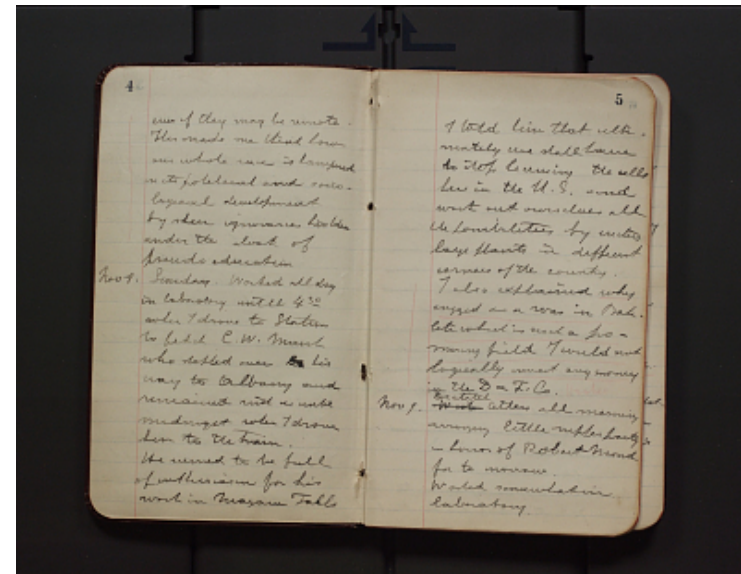 4
even if they may be remote.
This made me think how
our whole race is hampered
in its political and socio-
logical development
by sheer ignorance hidden
under the cloak of
pseudo education
Nov 8. Sunday. Worked all day
in laboratory until 4 30
when I drove to Station
to fetch C. W. Marsh
who stopped over his
way to Albany and
remained with us until
midnight when I drove
him to the train.
He seemed to be full
of enthusiasm for his
work in Niagara Falls
5
I told him that ulti-
mately we shall have
to stop licensing the cells
here in the U.S. and
work out ourselves all
the possibilities by
large plants in different
corners of the country.
I also explained why
as I was in Bake-
lite which is such a pro-
mising field I would not
logically invest any money
in the D & F. Co.
Nov 9. letters all morning
arranging little supper party
in honor of Robert Mond
for to morrow.
Worked somewhat in
laboratory.